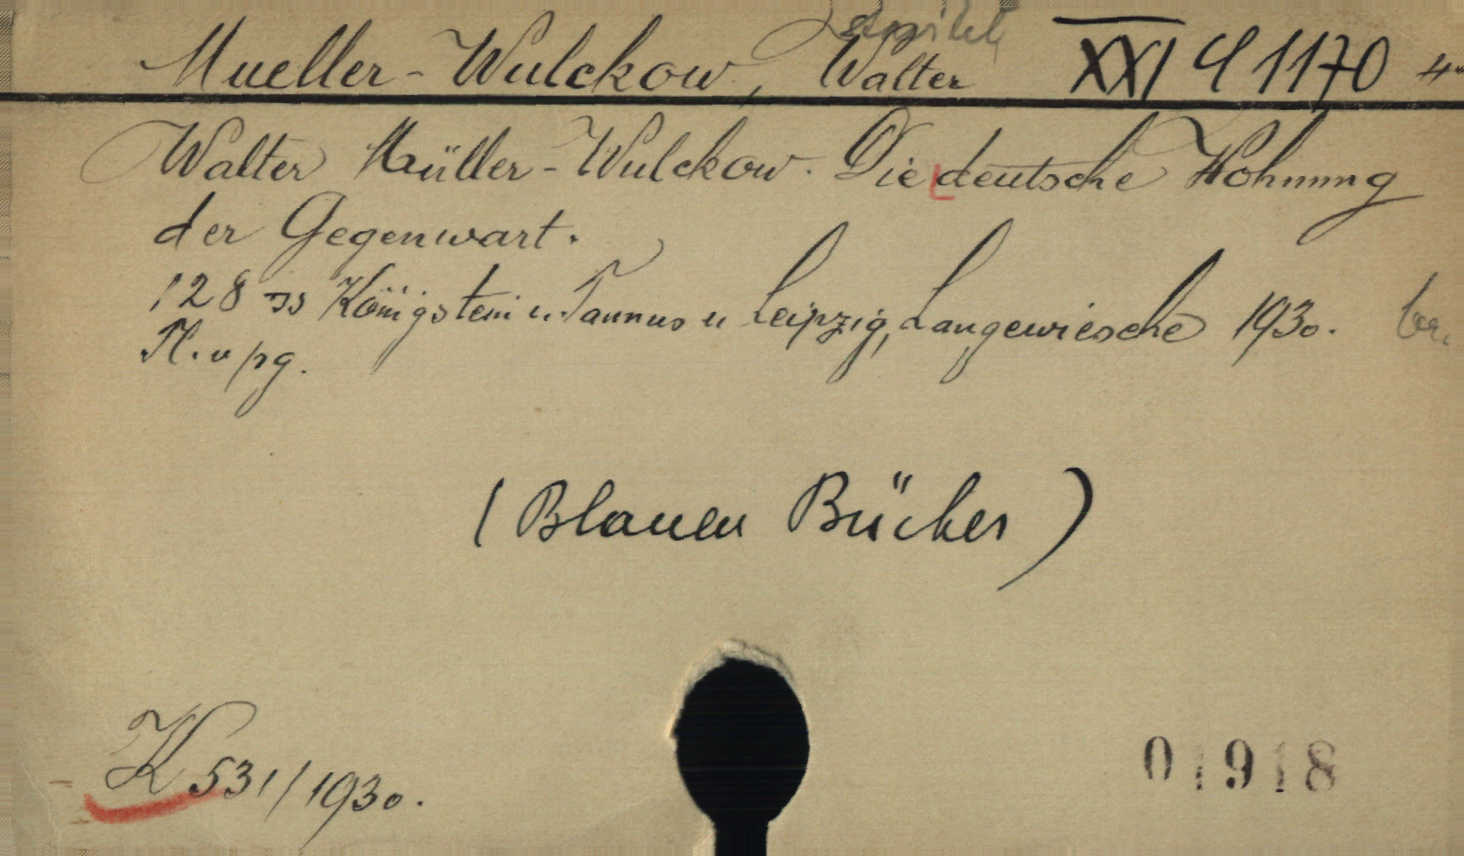 Mueller-Wulckow, Walter XXI C 1170 4°
Walter Müller-Wulckow. Die deutsche Wohnung
der Gegenwart.
128 ss Königstein i. Taunus u Leipzig, Langewiesche 1930.
Pl. u pg.
(Blauen Bücher)
K 531/1930.
01918